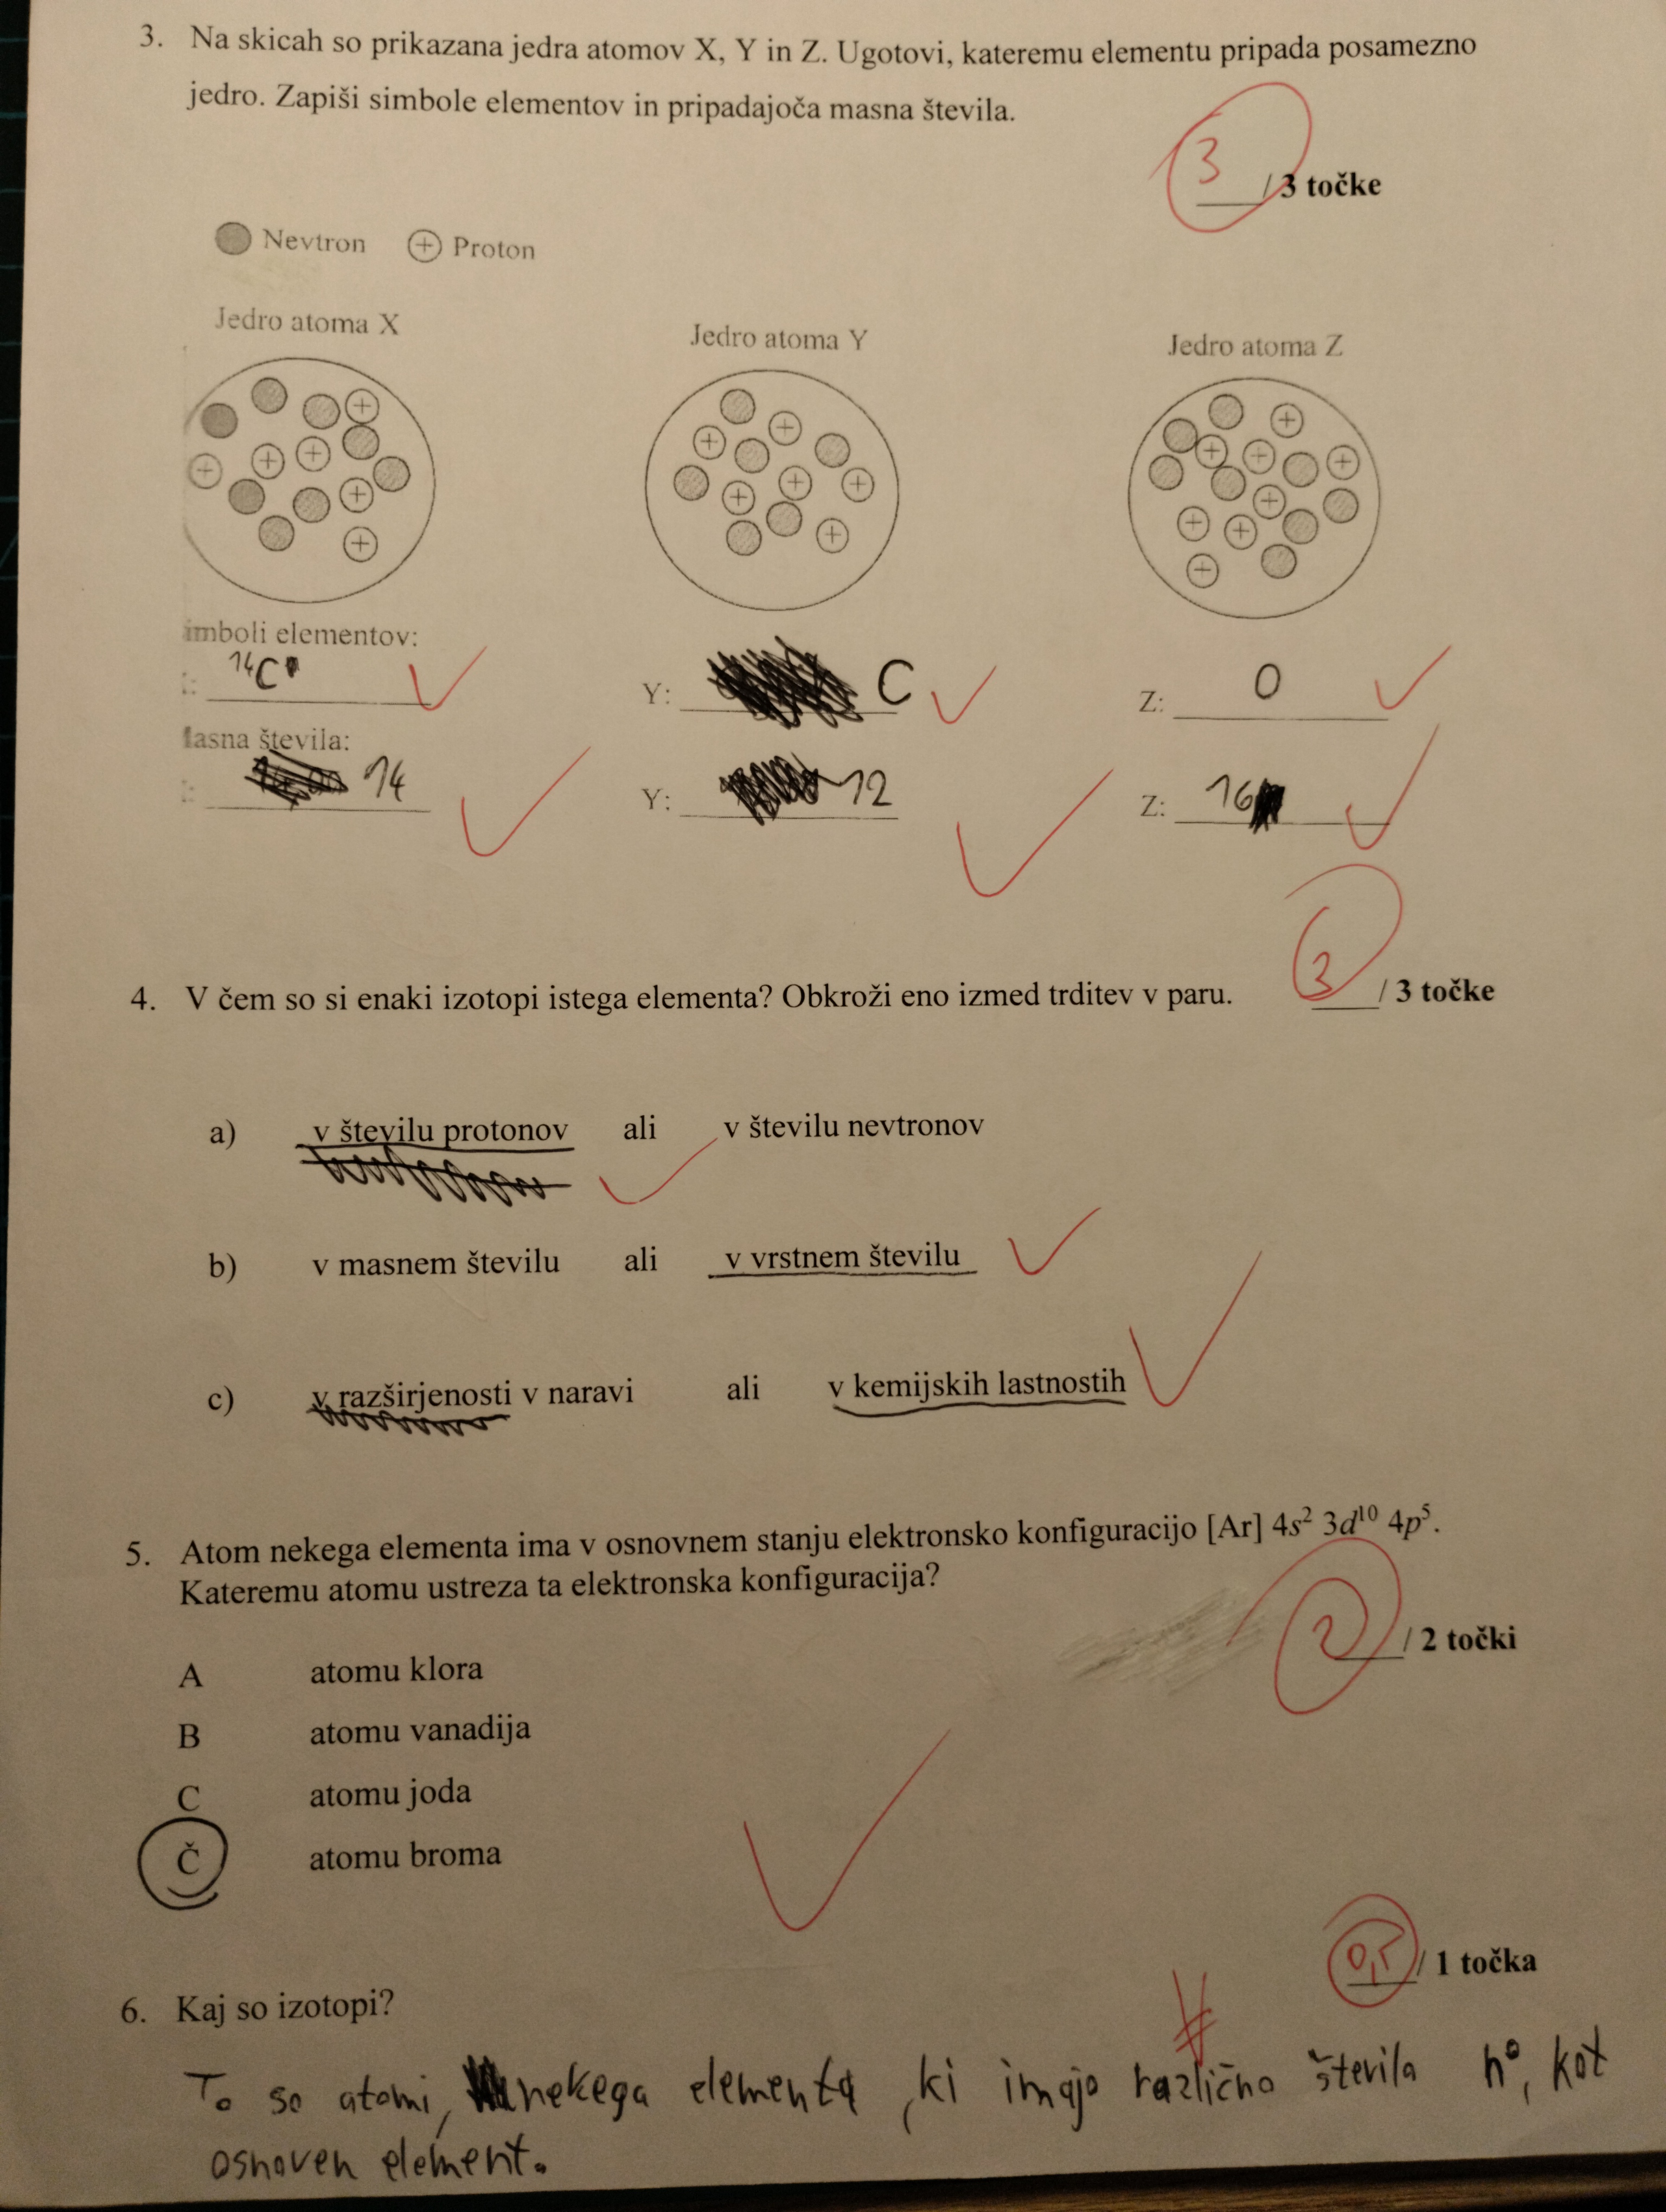 3. Na skicah so prikazana jedra atomov X, Y in Z. Ugotovi, kateremu elementu pripada posamezno
jedro. Zapiši simbole elementov in pripadajoča masna števila.
3 / 3 točke
Nevtron + Proton
Jedro atoma X Jedro atoma Y Jedro atoma Z
imboli elementov:
: ¹⁴C Y: C Z: O
asna števila:
: 14 Y: 12 Z: 16
4. V čem so si enaki izotopi istega elementa? Obkroži eno izmed trditev v paru. 3 / 3 točke
a) v številu protonov ali v številu nevtronov
b) v masnem številu ali v vrstnem številu
c) v razširjenosti v naravi ali v kemijskih lastnostih
5. Atom nekega elementa ima v osnovnem stanju elektronsko konfiguracijo [Ar] 4s² 3d¹⁰ 4p⁵.
Kateremu atomu ustreza ta elektronska konfiguracija?
2 / 2 točki
A atomu klora
B atomu vanadija
C atomu joda
Č atomu broma
0,5 / 1 točka
6. Kaj so izotopi?
To so atomi, nekega elementa, ki imajo različno števila n°, kot
osnoven element.